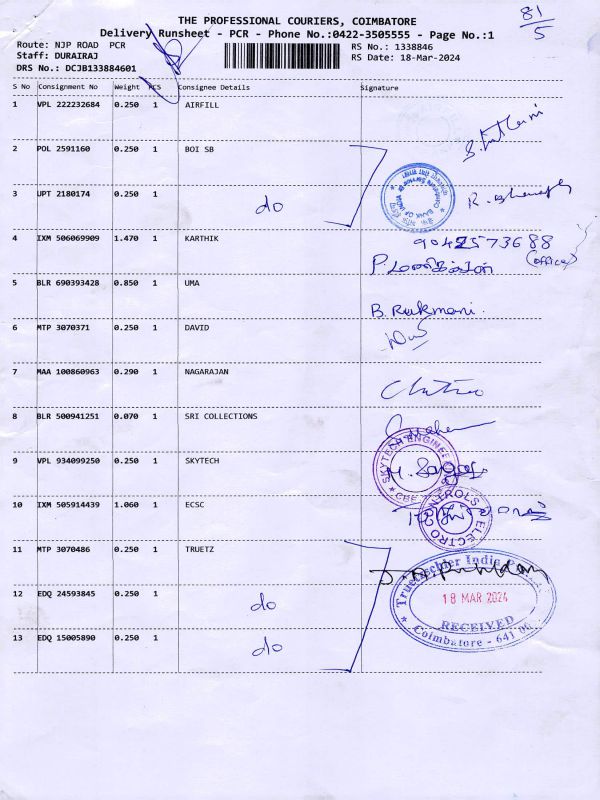 THE PROFESSIONAL COURIERS, COIMBATORE
81/5
Delivery Runsheet - PCR - Phone No.:0422-3505555 - Page No.:1
Route: NJP ROAD PCR
RS No.: 1338846
Staff: DURAIRAJ
RS Date: 18-Mar-2024
DRS No.: DCJB133884601
S No Consignment No Weight PCS Consignee Details Signature
1 VPL 222232684 0.250 1 AIRFILL
2 POL 2591160 0.250 1 BOI SB
3 UPT 2180174 0.250 1 do
4 IXM 506069909 1.470 1 KARTHIK 9042573688
(OFFICE)
5 BLR 690393428 0.850 1 UMA B. Rukmani.
6 MTP 3070371 0.250 1 DAVID
7 MAA 100860963 0.290 1 NAGARAJAN
8 BLR 500941251 0.070 1 SRI COLLECTIONS
9 VPL 934099250 0.250 1 SKYTECH
SKYTECH ENGINEE
CBE
10 IXM 505914439 1.060 1 ECSC
CONTROLS
ELECTRO
11 MTP 3070486 0.250 1 TRUETZ
12 EDQ 24593845 0.250 1 do
18 MAR 2024
RECEIVED
Coimbatore - 641
13 EDQ 15005890 0.250 1 do